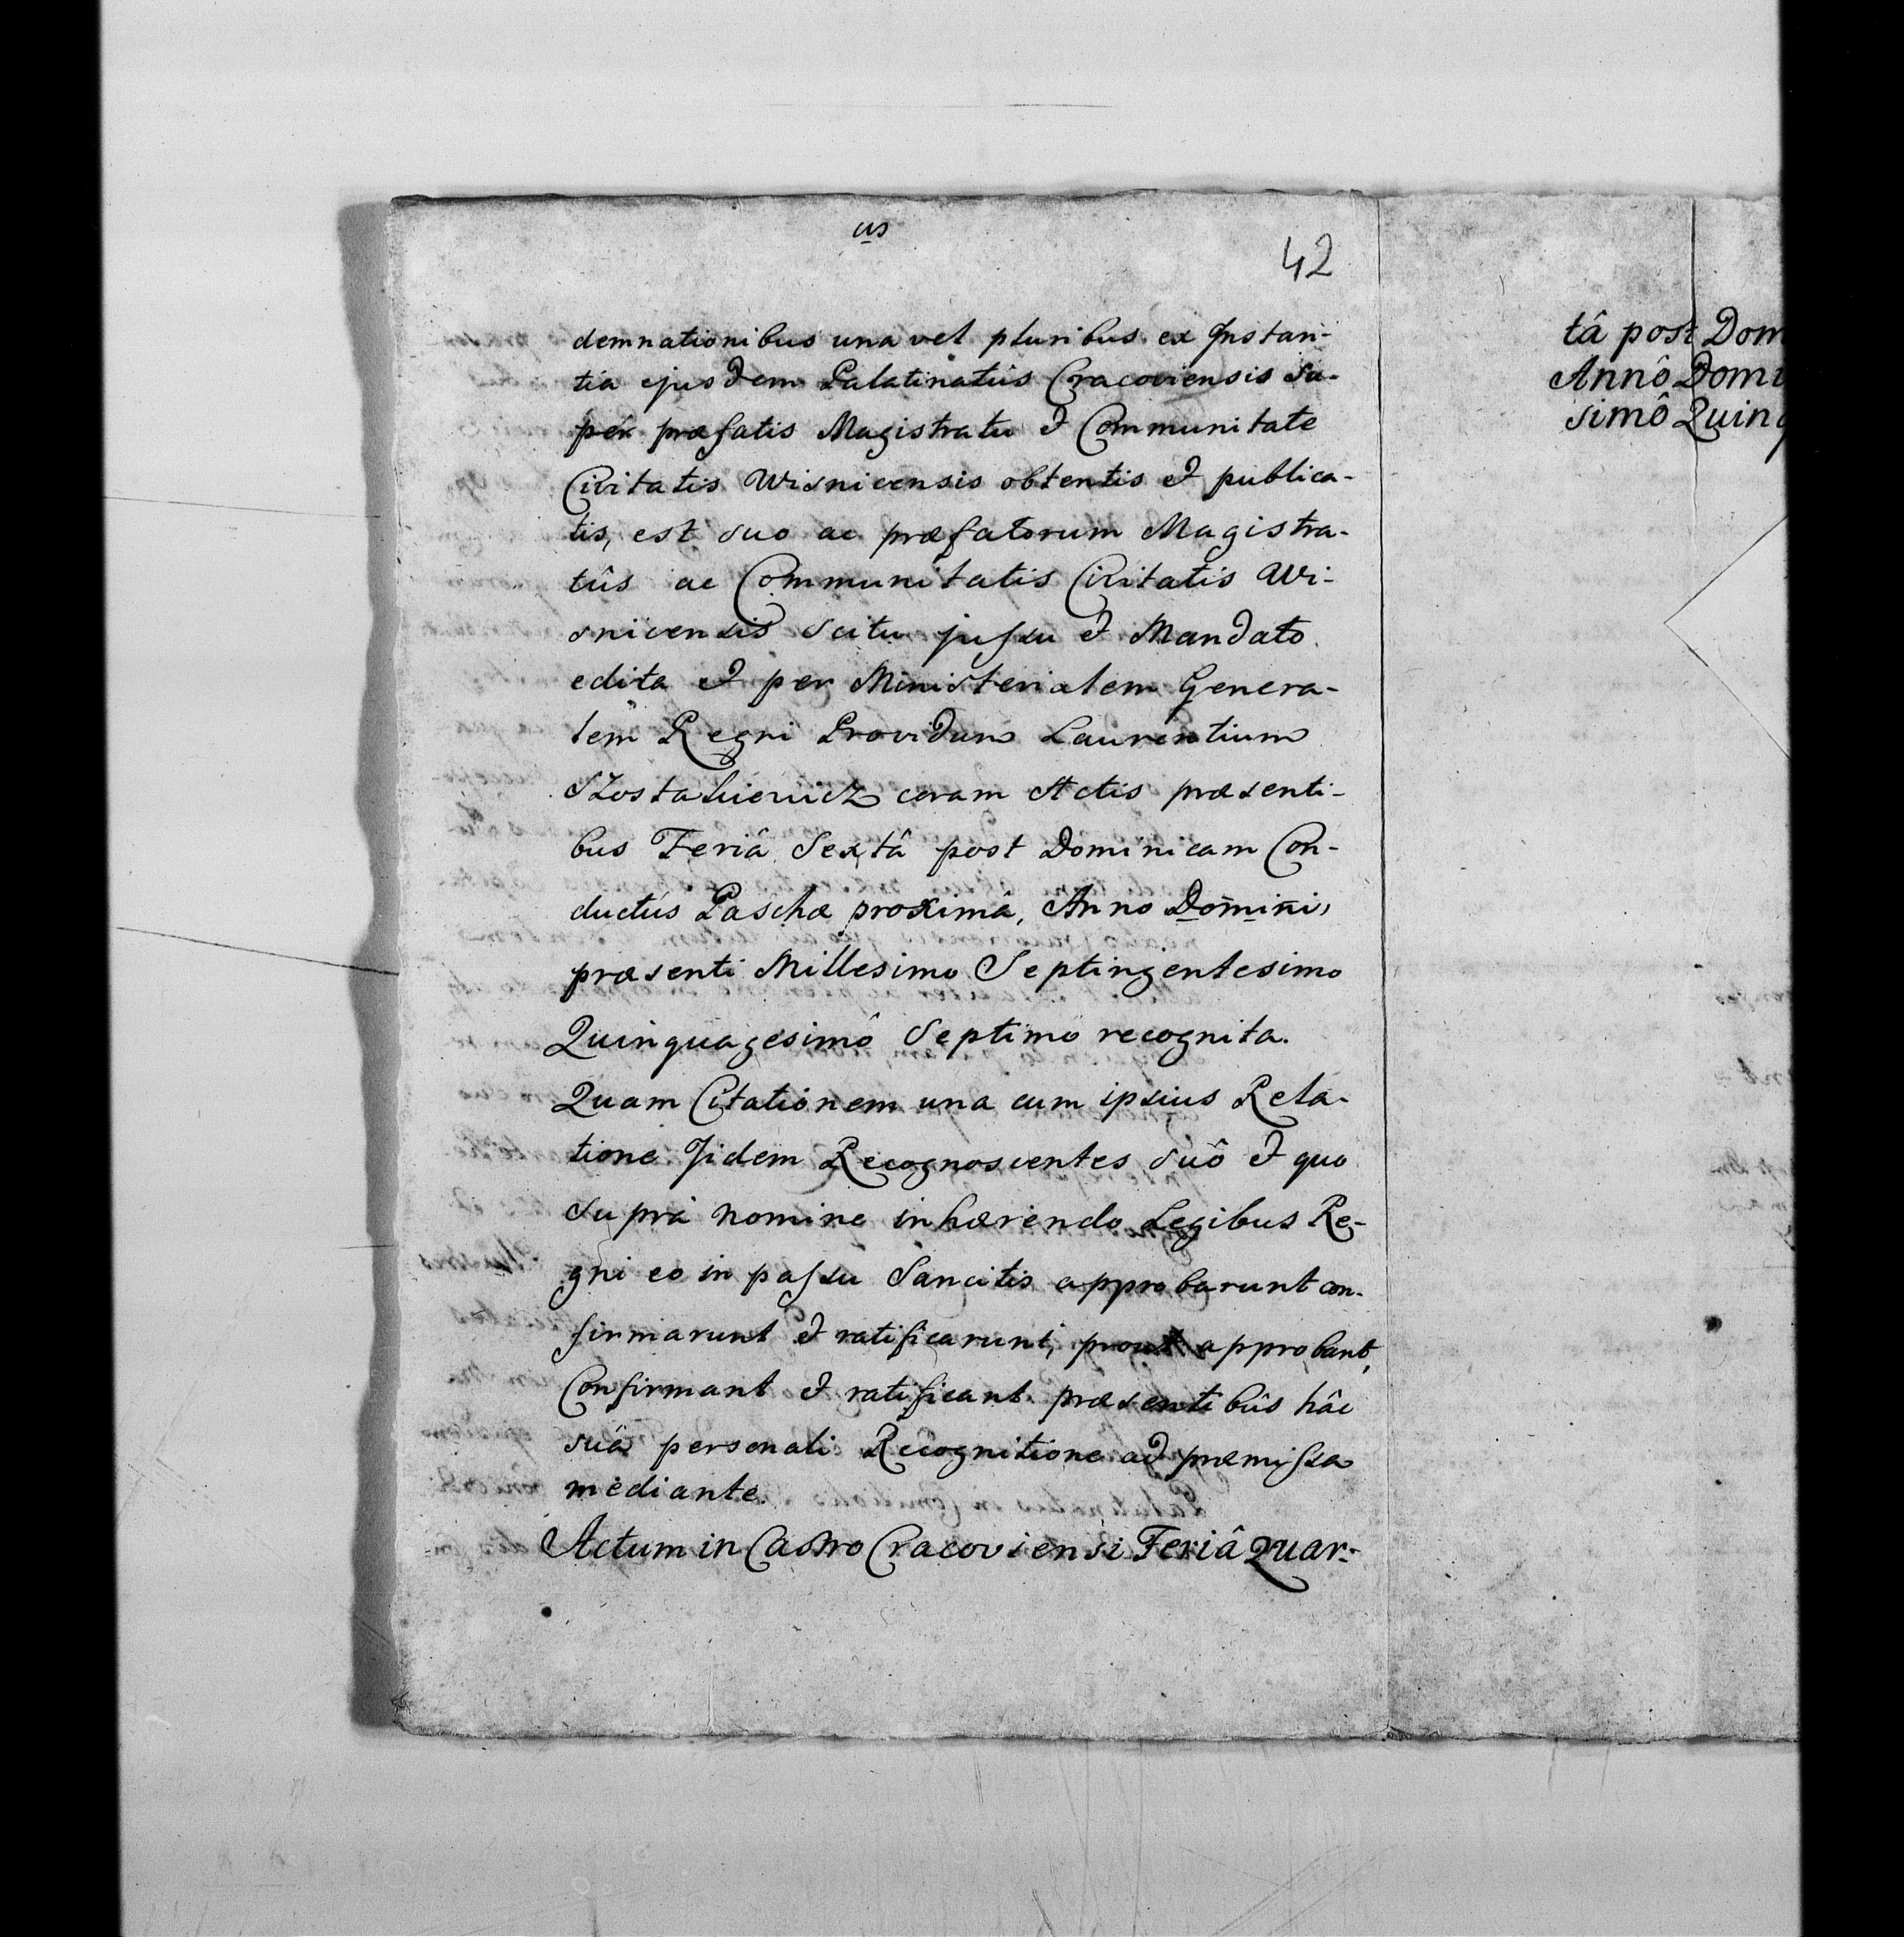 us
42
demnationibus una vel pluribus ex Instan-
tia ejusdem Palatinatûs Cracoviensis Su-
per præfatis Magistratu et Communitate
Civitatis Wisnicensis obtentis et publica-
tis, est suo ac præfatorum Magistra-
tûs ac Communitatis Civitatis Wi-
snicensis Scitu jussu et Mandato
edita et per Ministerialem Genera-
lem Regni Providum Laurentium
coram Actis præsenti-
bus Feriâ Sextâ post Dominicam Con-
ductûs Paschæ proximâ, Anno Domini,
præsenti Millesimo Septingentesimo
Quinquagesimô Septimo recognita.
Quam Citationem una cum ipsius Rela-
tione Iidem Recognoscentes suô et quo
supra nomine inhærendo Legibus Re-
gni eo in passu Sancitis approbarunt con-
firmarunt et ratificarunt, prout approbant,
Confirmant et ratificant præsentibûs hâc
suâ personali Recognitione ad præmissa
mediante.
Actum in Castro Cracoviensi Feriâ Quar-
tâ post Dom
Annô Domi
simô Quinq